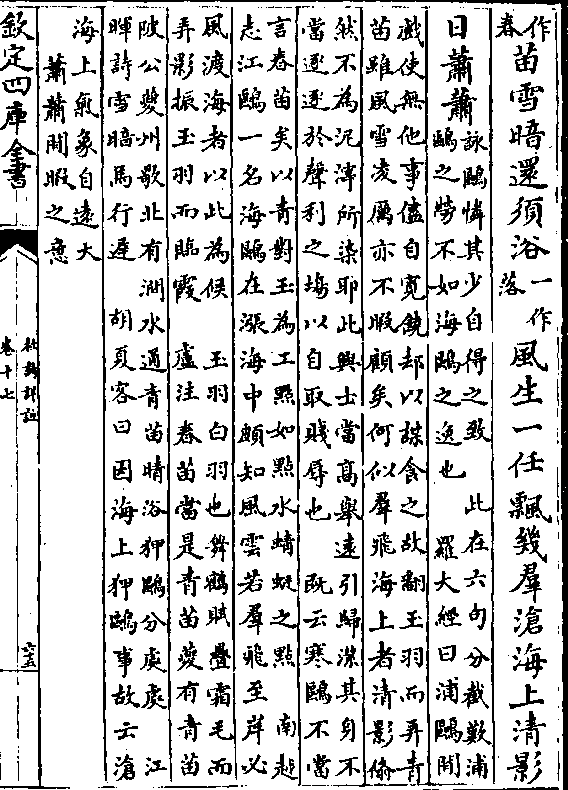 作春苗雪暗還須浴一作落風生一任飄幾羣滄海上清影
日蕭蕭
詠鷗憐其少自得之致　此在六句分截歎浦
鷗之勞不如海鷗之逸也　羅大經曰浦鷗閒
戲使無他事儘自寛饒却以謀食之故翻玉羽而弄青
苗雖風雪凌厲亦不暇顧矣何似羣飛海上者清影翛
然不為泥滓所染耶此興士當高舉遠引歸潔其身不
當逐逐於聲利之塲以自取賤辱也　既云寒鷗不當
言春苗矣以青對玉為工點如點水蜻蜓之點　南越
志江鷗一名海鷗在漲海中頗知風雲若羣飛至岸必
風渡海者以此為候　玉羽白羽也舞鶴賦疊霜毛而
弄影振玉羽而臨霞　盧注春苗當是青苗夔有青苗
陂公夔州歌北有澗水通青苗晴浴狎鷗分處處　江
暉詩雪暗馬行遲　胡夏客曰因海上狎鷗事故云滄
海上氣象自遠大
蕭蕭閒暇之意
欽定四庫全書
杜詩詳註
卷十七
六十五